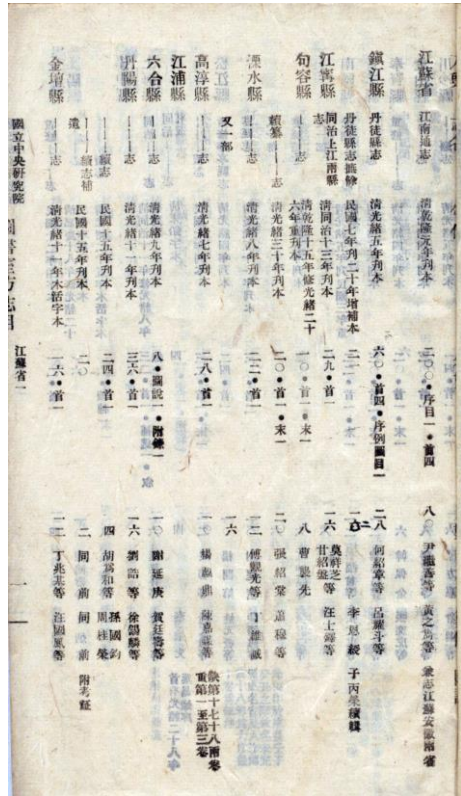 江蘇省 江南通志 清乾隆元年刊本 二〇〇•序目一•首四 八〇 尹繼善等 黃之雋等 兼志江蘇安徽兩省
鎮江縣 丹徒縣志 清光緒五年刊本 六〇•首四•序例圖目一 二八 何紹章等 呂耀斗等
丹徒縣志摭餘 民國七年刊二十年增補本 二一 李恩綬 子丙榮續輯
江寧縣 同治上江兩縣志 清同治十三年刊本 二九•首一 一六 莫祥芝等 甘紹盤 汪士鐸等
句容縣 ——志 清乾隆十五年修光緒二十六年重刊本 一〇•首一•末一 八 曹襲先
續纂——志 清光緒三十年刊本 二〇•首一•末一 二〇 張紹棠 蕭穆等
溧水縣 ——志 清光緒八年刊本 二二•首一 一二 傅觀光等 丁維誠
又一部 一六 缺第十七十八兩卷重第一至第三卷
高淳縣 ——志 清光緒七年刊本 二八•首一
江浦縣
六合縣 ——志 清光緒九年刊本 八•圖說一•附錄一 一〇 謝延庚 賀廷壽等
丹陽縣 ——志 清光緒十一年刊本 三六•首一 一六 劉誥等 徐錫麟等
——續志 民國十五年刊本 二四•首一 四 胡為和等 孫國鈞 周桂榮
——續志補遺 民國十五年刊本 二〇 二 同前 同前 附考証
金壇縣 ——志 清光緒十一年木活字本 一六•首一 一二 丁兆基等 汪國鳳等
國立中央研究院 圖書室方志目 江蘇省一 一